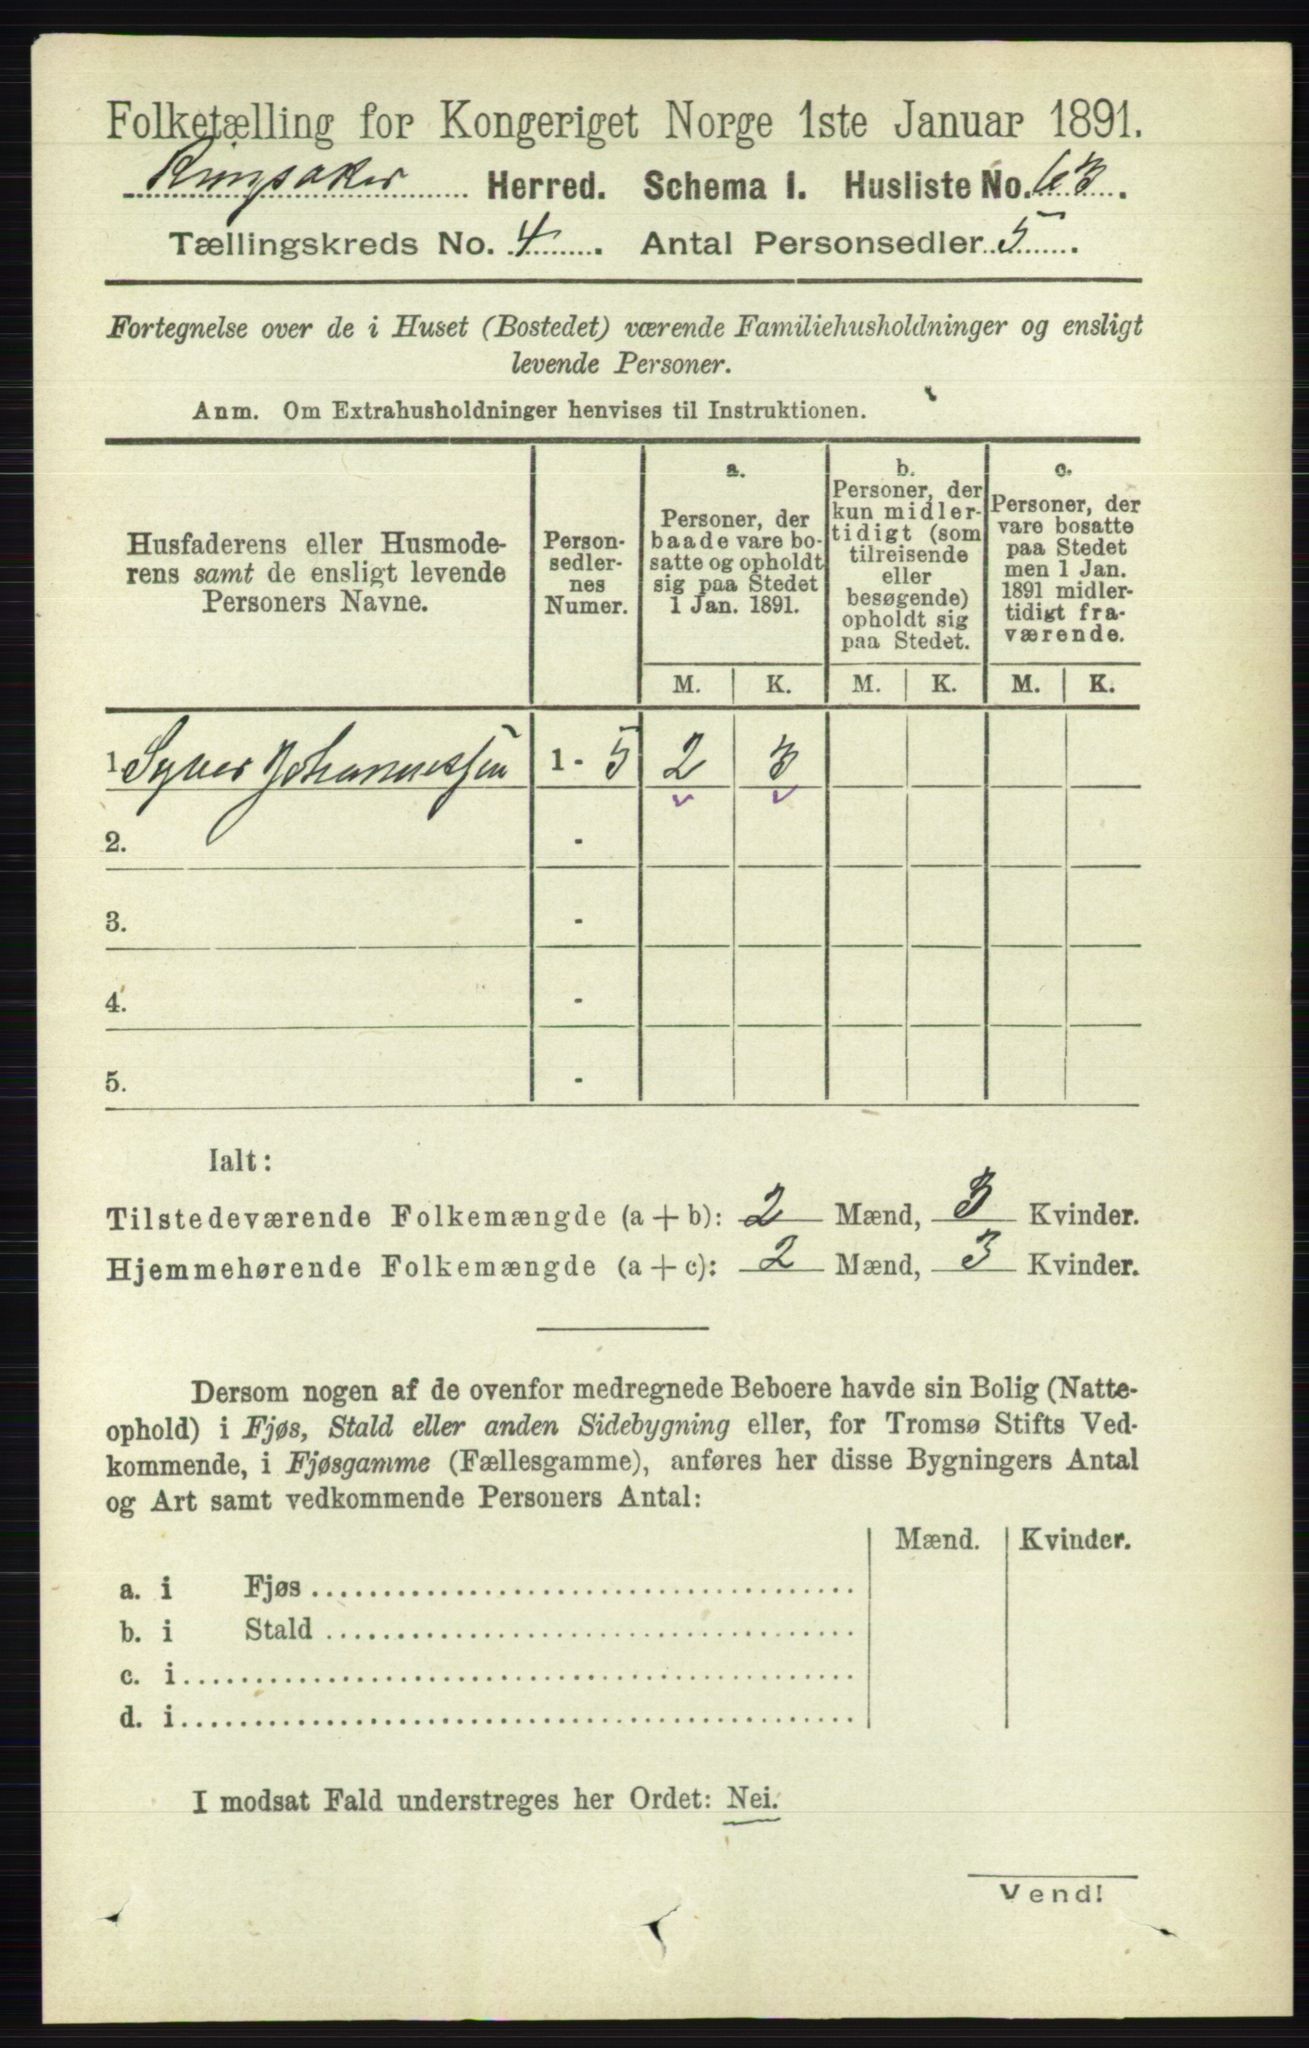 Folketælling for Kongeriget Norge 1ste Januar 1891.
Ringsaker Herred. Schema I. Husliste No. 63.
Tællingskreds No. 4. Antal Personsedler 5.
Fortegnelse over de i Huset (Bostedet) værende Familiehusholdninger og ensligt
levende Personer.
Anm. Om Extrahusholdninger henvises til Instruktionen.
Husfaderens eller Husmode-
rens samt de ensligt levende
Personers Navne.
Person-
sedler-
nes
Numer.
a.
Personer, der
baade vare bo-
satte og opholdt
sig paa Stedet
1 Jan. 1891.
b.
Personer, der
kun midler-
tidigt (som
tilreisende
eller
besøgende)
opholdt sig
paa Stedet.
c.
Personer, der
vare bosatte
paa Stedet
men 1 Jan.
1891 midler-
tidigt fra-
værende.
M. K. M. K. M. K.
1 Syver Johannessen 1 - 5 2 3
2. -
3. -
4. -
5. -
Ialt:
Tilstedeværende Folkemængde (a + b): 2 Mænd, 3 Kvinder.
Hjemmehørende Folkemængde (a + c): 2 Mænd, 3 Kvinder.
Dersom nogen af de ovenfor medregnede Beboere havde sin Bolig (Natte-
ophold) i Fjøs, Stald eller anden Sidebygning eller, for Tromsø Stifts Ved-
kommende, i Fjøsgamme (Fællesgamme), anføres her disse Bygningers Antal
og Art samt vedkommende Personers Antal:
Mænd. Kvinder.
a. i Fjøs
b. i Stald
c. i
d. i
I modsat Fald understreges her Ordet: Nei.
Vend!